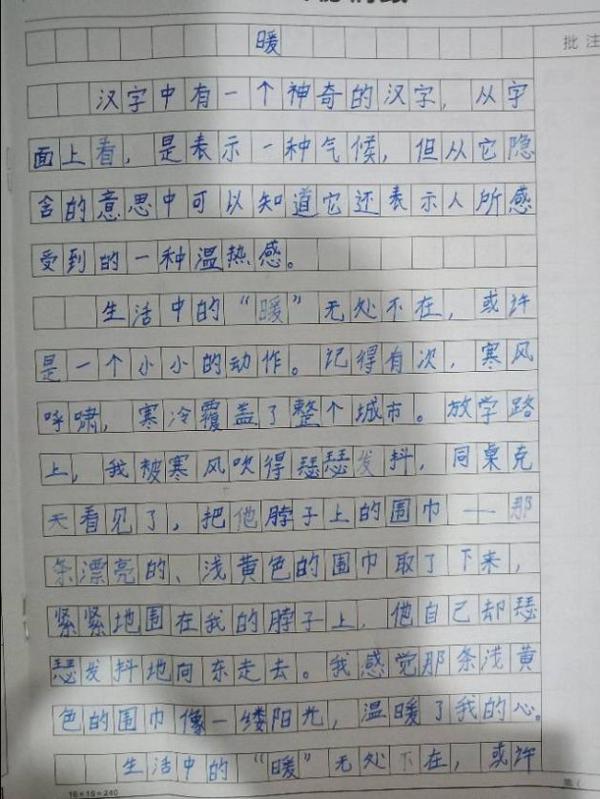 批注
暖
汉字中有一个神奇的汉字,从字
面上看,是表示一种气候,但从它隐
含的意思中可以知道它还表示人所感
受到的一种温热感。
生活中的“暖”无处不在,或许
是一个小小的动作。记得有次,寒风
呼啸,寒冷覆盖了整个城市。放学路
上,我被寒风吹得瑟瑟发抖,同桌克
天看见了,把他脖子上的围巾——那
条漂亮的、浅黄色的围巾取了下来,
紧紧地围在我的脖子上,他自己却瑟
瑟发抖地向东走去。我感觉那条浅黄
色的围巾像一缕阳光,温暖了我的心。
生活中的“暖”无处不在,或许
16×15=240